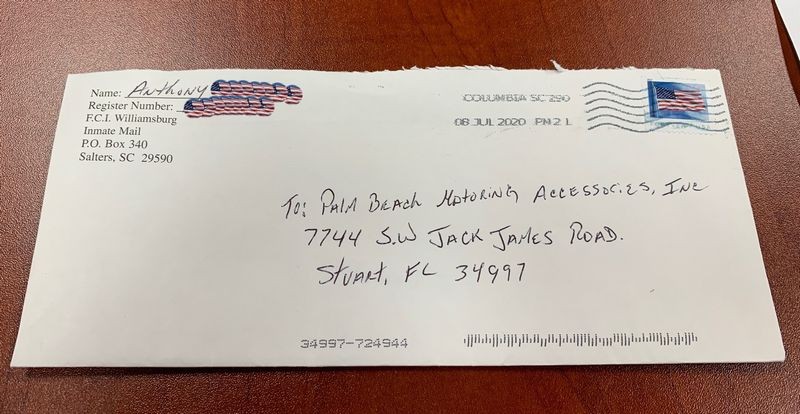 Name: Anthony
Register Number:
F.C.I. Williamsburg
Inmate Mail
P.O. Box 340
Salters, SC 29590
COLUMBIA SC 290
08 JUL 2020 PM 2 L
To: Palm Beach Motoring Accessocies, Inc
7744 S.W Jack James Road.
Stuart, FL 34997
34997-724944